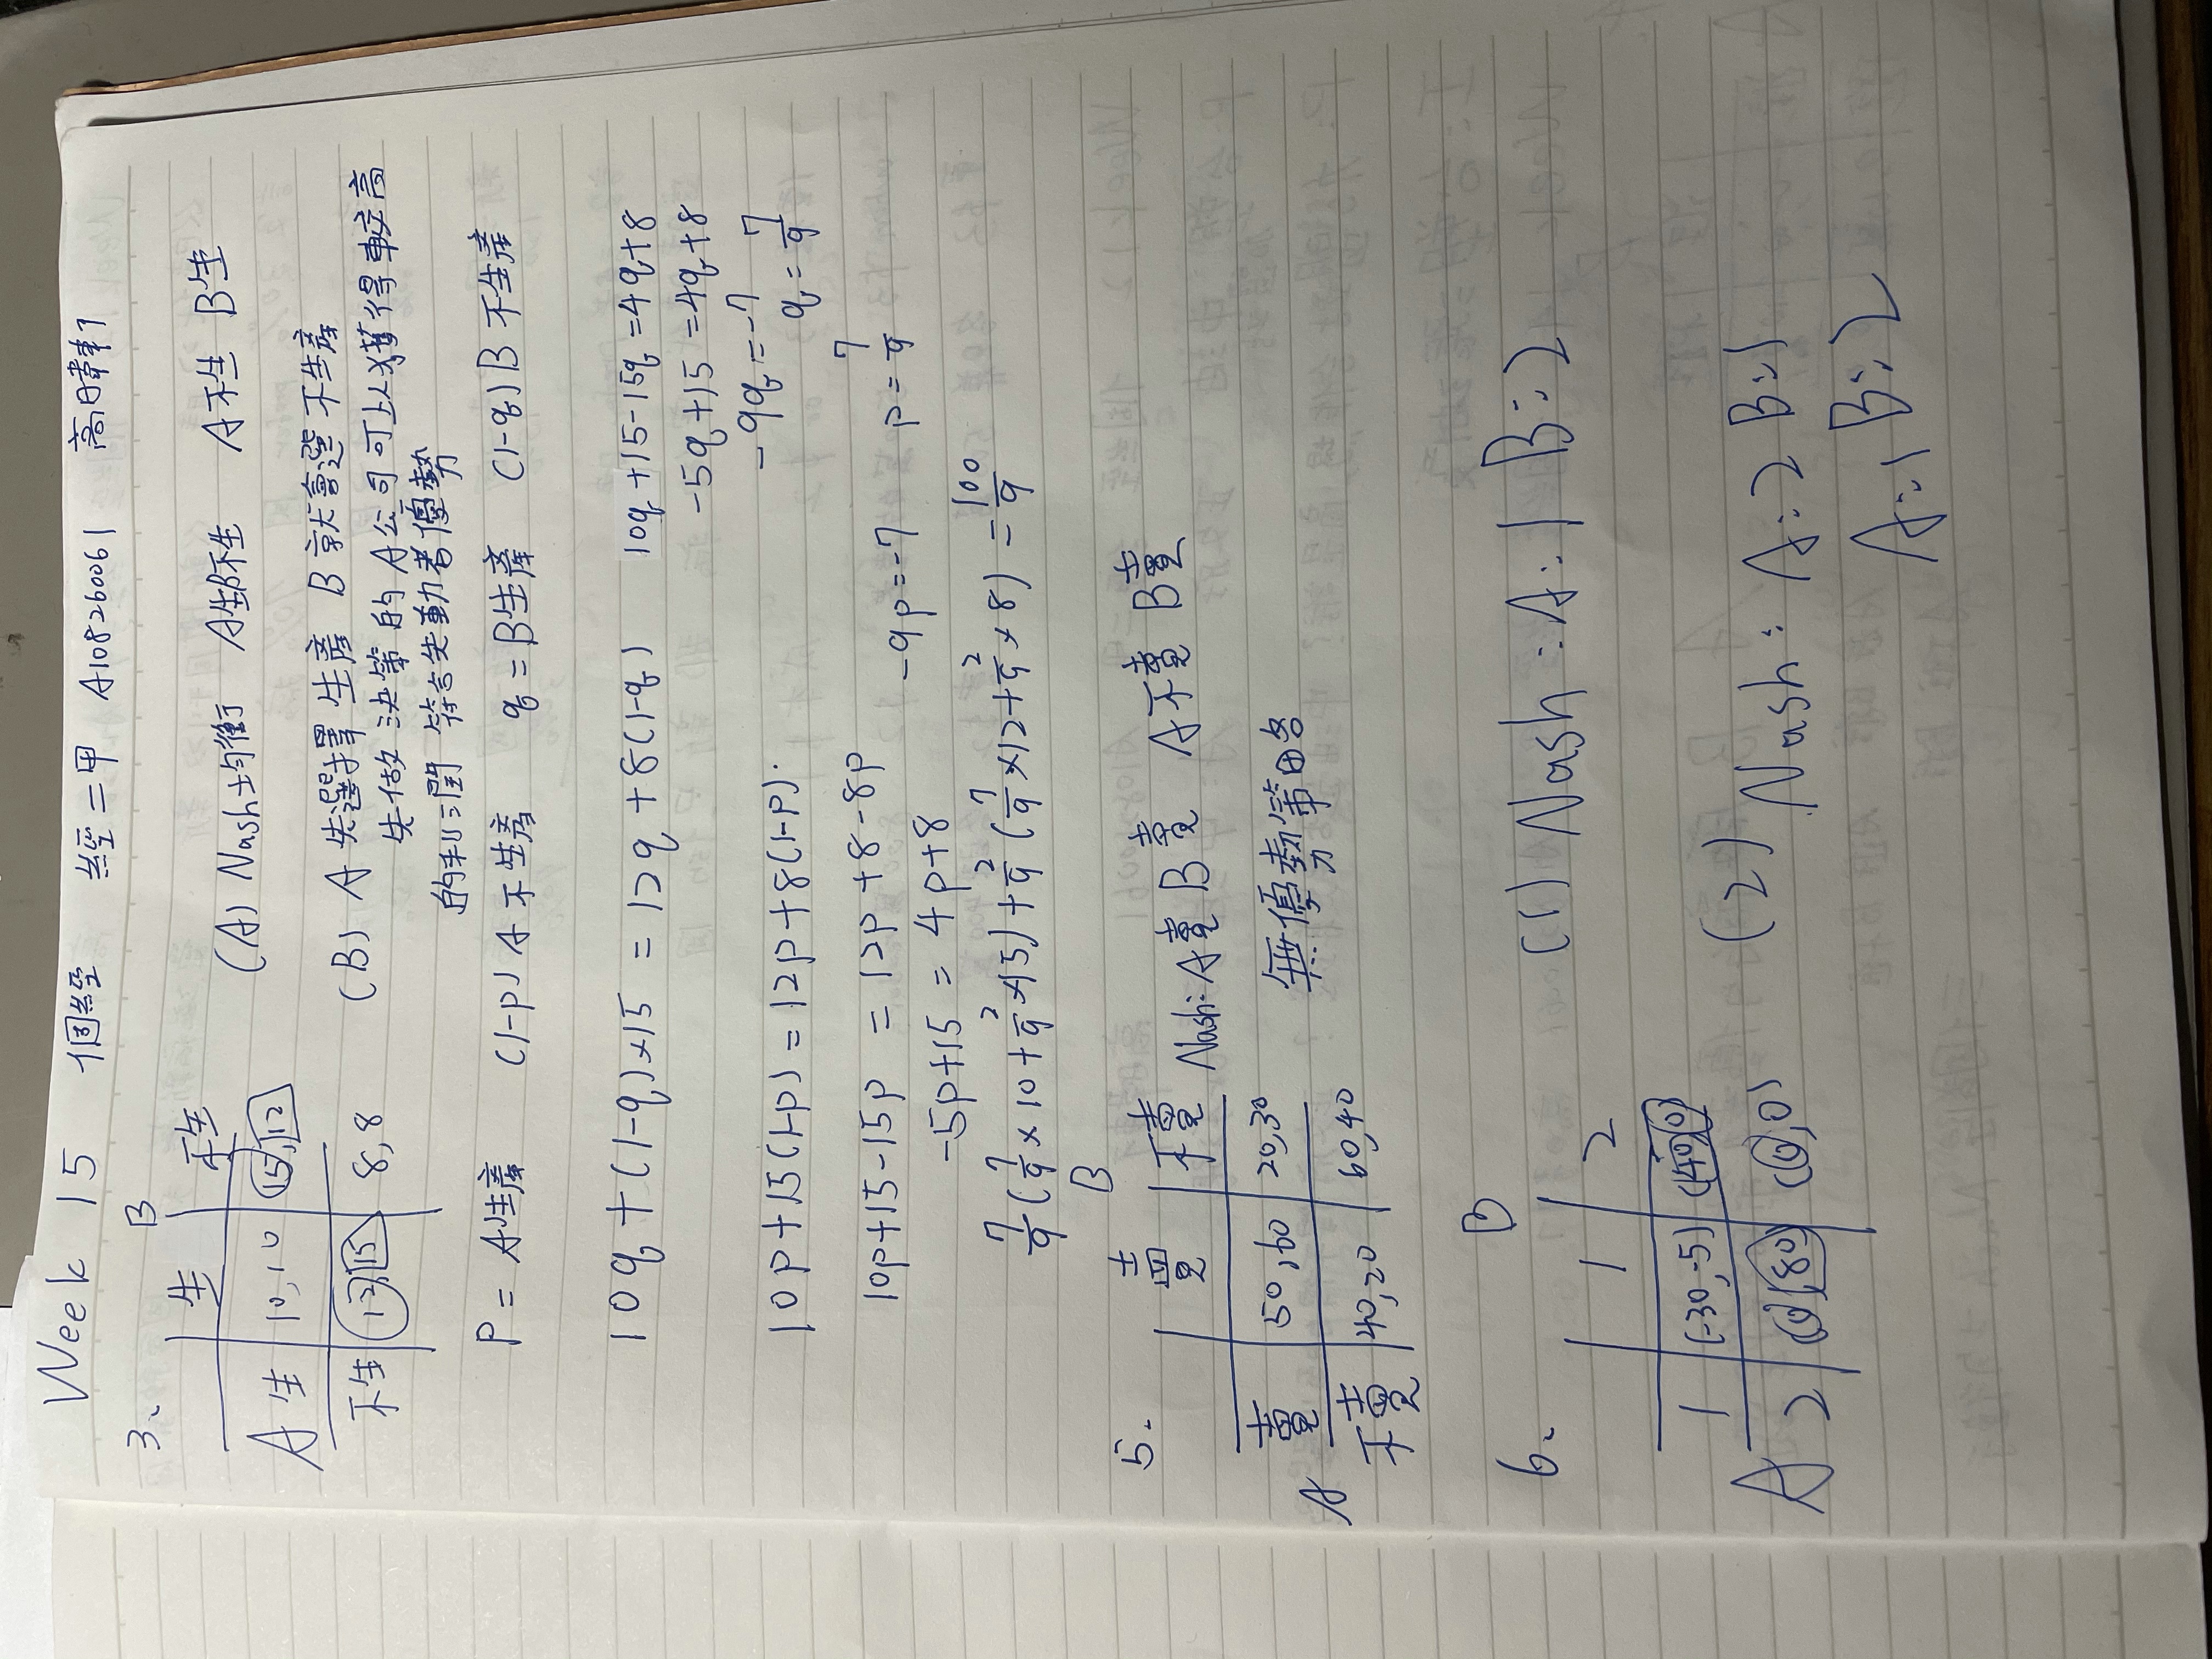 Week 15 個經 經二甲 A108260061 高日韋軒
3、 B
生 不生
A 生 10,10 15,12
不生 12,15 8,8
(A) Nash均衡 A生B不生 A不生 B生
(B) A先選擇生產 B就會選不生產
先做決策的A公司可以獲得較高
的利潤 符合先動者優勢
P = A生產 (1-P) A不生產 q = B生產 (1-q) B不生產
10q + (1-q)×15 = 12q + 8(1-q) 10q+15-15q = 4q+8
-5q+15 = 4q+8
-9q = -7 q = 7/9
10p+15(1-p) = 12p+8(1-p)
10p+15-15p = 12p+8-8p -9p = -7 p = 7/9
-5p+15 = 4p+8
7/9 (7/9 × 10 + 2/9 × 15) + 2/9 (7/9 × 12 + 2/9 × 8) = 100/9
5、 B
賣 不賣
A 賣 50,60 20,30
不賣 40,20 60,40
Nash: A賣 B賣 A不賣 B賣
無優勢策略
6、 B
1 2
A 1 (-30,-5) (140,0)
2 (0,80) (0,0)
(1) Nash: A:1 B:2
(2) Nash: A:2 B:1
A:1 B:2